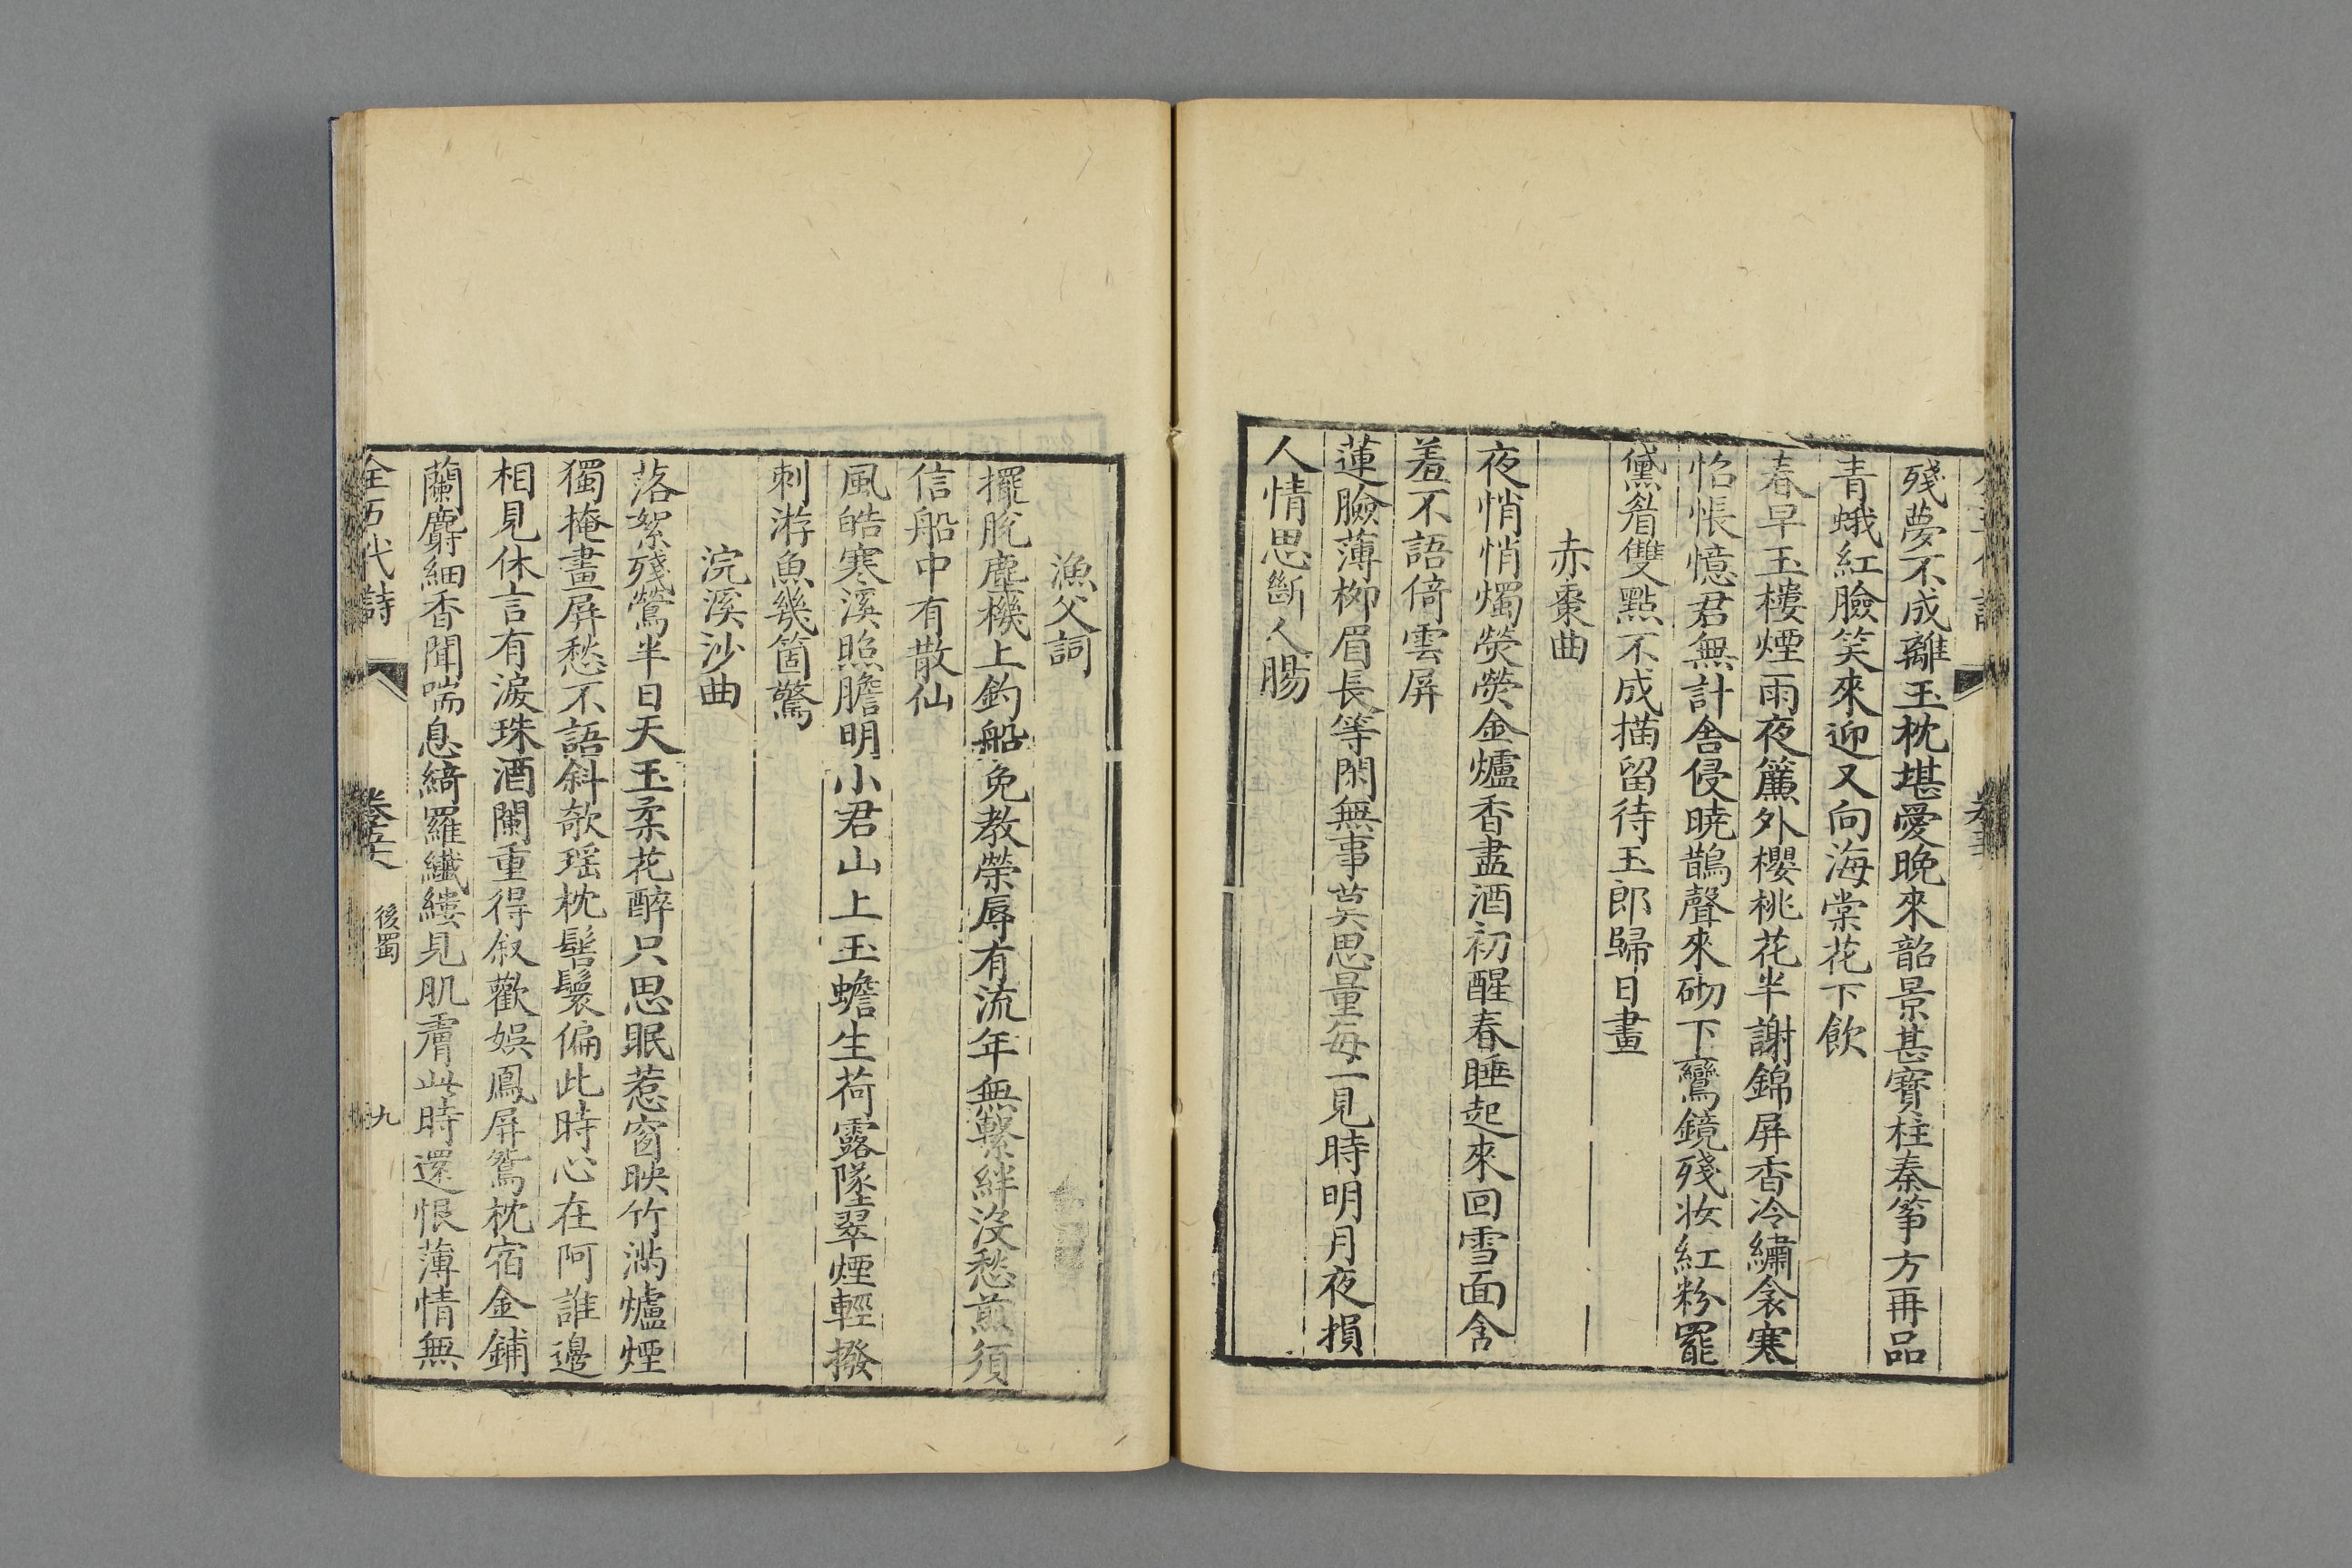 殘夢不成離玉枕堪愛晚來韶景甚寶柱秦箏方再品
青蛾紅臉笑來迎又向海棠花下飲
春早玉樓煙雨夜簾外櫻桃花半謝錦屏香冷繡衾寒
怊悵憶君無計舍侵曉鵲聲來砌下鸞鏡殘妝紅粉罷
黛眉雙點不成描留待玉郎歸日畫
赤棗曲
夜悄悄燭熒熒金爐香盡酒初醒春睡起來回雪面含
羞不語倚雲屏
蓮臉薄柳眉長等閑無事莫思量每一見時明月夜損
人情思斷人腸
漁父詞
擺脫塵機上釣船免教榮辱有流年無繫絆沒愁煎須
信船中有散仙
風皓寒溪照膽明小君山上玉蟾生荷露墜翠煙輕撥
刺游魚幾箇驚
浣溪沙曲
落絮殘鶯半日天玉柔花醉只思眠惹窗映竹滿爐煙
獨掩畫屏愁不語斜欹瑶枕髻鬟偏此時心在阿誰邊
相見休言有淚珠酒闌重得叙歡娛鳳屏鴛枕宿金鋪
蘭麝細香聞喘息綺羅纖縷見肌膚此時還恨薄情無
全五代詩
後蜀
九